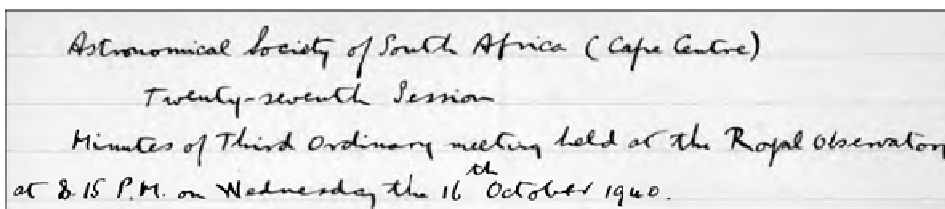 Astronomical Society of South Africa (Cape Centre)
Twenty-seventh Session
Minutes of Third Ordinary meeting held at the Royal Observatory
at 8.15 P.M. on Wednesday the 16th October 1940.